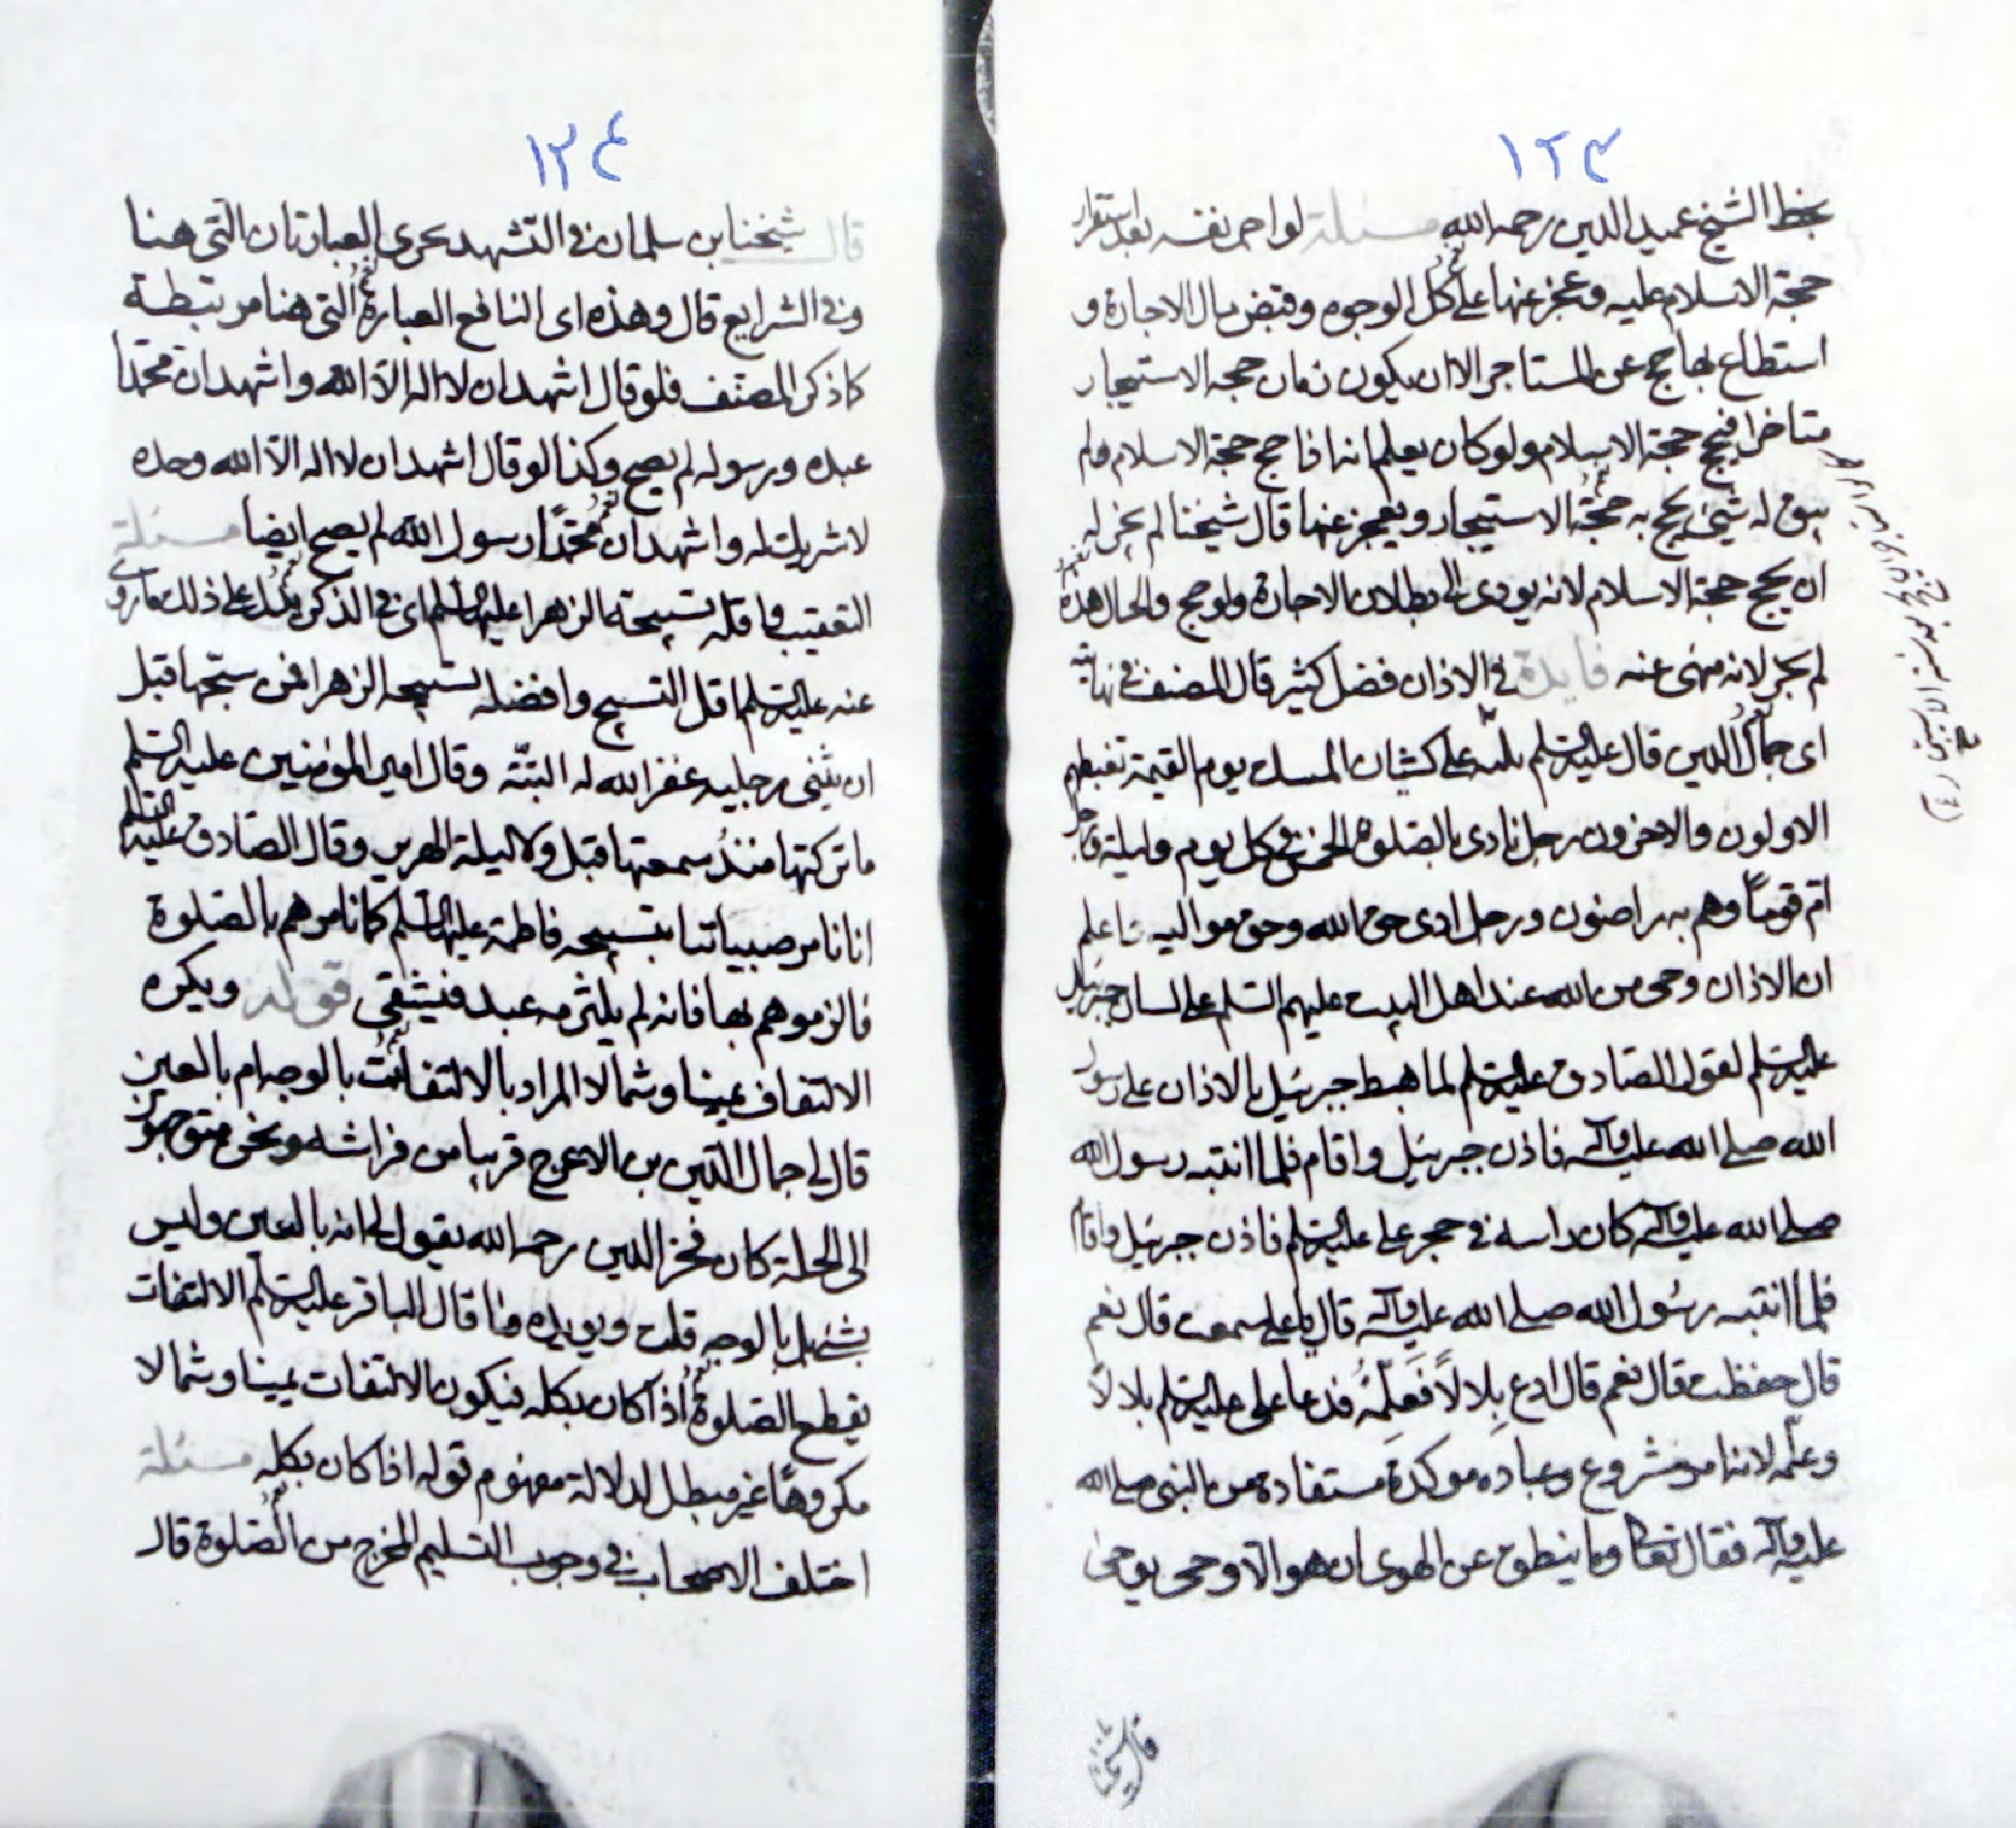 ١٢٣
بخط الشيخ عميد الدين رحمه الله مسئلة لو اجر نفسه بعد استقرار
حجة الاسلام عليه وعجز عنها على كل الوجوه وقبض مال الاجارة و
استطاع بها حج عن المستاجر الا ان يكون زمان حجة الاستيجار
متاخرا فيحج حجة الاسلام ولو كان يعلم انه اذا حج حجة الاسلام ولم
يبق له شيئ يحج به حجة الاستيجار ويعجز عنها قال شيخنا لم يجز له
ان يحج حجة الاسلام لانه يودى الى بطلان الاجارة ولو حج والحال هذه
لم يجز لانه منهى عنه فايدة فى الاذان فضل كثير قال المصنف فى نهايته
اى جمال الدين قال عليه السلم ثلثة على كثبان المسك يوم القيمة تغبطهم
الاولون والاخرون رجل نادى بالصلوة الخمس فى كل يوم وليلة ورجل
ام قوما وهم به راضون ورجل ادى حق الله وحق مواليه فاعلم
ان الاذان وحى من الله عند اهل البيت عليهم السلم على لسان جبرئيل
عليه السلم لقول الصادق عليه السلم لما هبط جبرئيل بالاذان على رسول
الله صلى الله عليه وآله فاذن جبرئيل واقام فلما انتبه رسول الله
صلى الله عليه وآله كان راسه فى حجر على عليه السلم فاذن جبرئيل واقام
فلما انتبه رسول الله صلى الله عليه وآله قال يا على سمعت قال نعم
قال حفظت قال نعم قال ادع بِلالاً فَعَلِّمْهُ فدعا على عليه السلم بلالاً
وعلّمه لانه امر مشروع وعباده موكدة مستفادة من النبى صلى الله
عليه وآله فقال تعا وما ينطق عن الهوى ان هو الا وحى يوحى
قال شيخنا
١٢٤
قال شيخنا بن سلمان فى التشهد يجرى العبارتان التى هنا
وفى الشرايع قال وهذه اى النافع العبارة التى هنا مرتبطة
كما ذكر المصنف فلو قال اشهد ان لا اله الا الله واشهد ان محمدا
عبده ورسوله لم يصح وكذا لو قال اشهد ان لا اله الا الله وحده
لا شريك له واشهد ان محمدًا رسول الله لم يصح ايضا مسئلة
التعقيب واقله تسبيحة الزهرا عليها السلم اى فى الذكر يدل على ذلك ما روى
عنه عليه السلم اقل التسبيح وافضله تسبيحه الزهرا فمن سبّحها قبل
ان يثنى رجليه غفر الله له البتّة وقال امير المؤمنين عليه السلم
ما تركتها منذُ سمعتها قبل ولا ليلة الهرير وقال الصادق عليه السلم
انا نامر صبياننا بتسبيحه فاطمة عليها السلم كما نامرهم بالصلوة
فالزموهم بها فانه لم يلثزمه عبد فيشقى قوله ويكره
الالتفاف يمينا وشمالا المراد بالالتفات بالوجه ام بالعين
قال لى جمال الدين بن الاعرج قريبا من فراشه ونحن متوجهون
الى الحلة كان فخر الدين رحمه الله يقول لى انه بالعين وليس
بشئ بل بالوجه قلت ويويده ما قال الباقر عليه السلم الالتفات
يقطع الصلوة اذا كان بكله فيكون الالتفات يمينا وشمالا
مكروهًا غير مبطل لدلالة مفهوم قوله اذا كان بكله مسئلة
اختلف الاصحاب فى وجوب التسليم المخرج من الصلوة قال